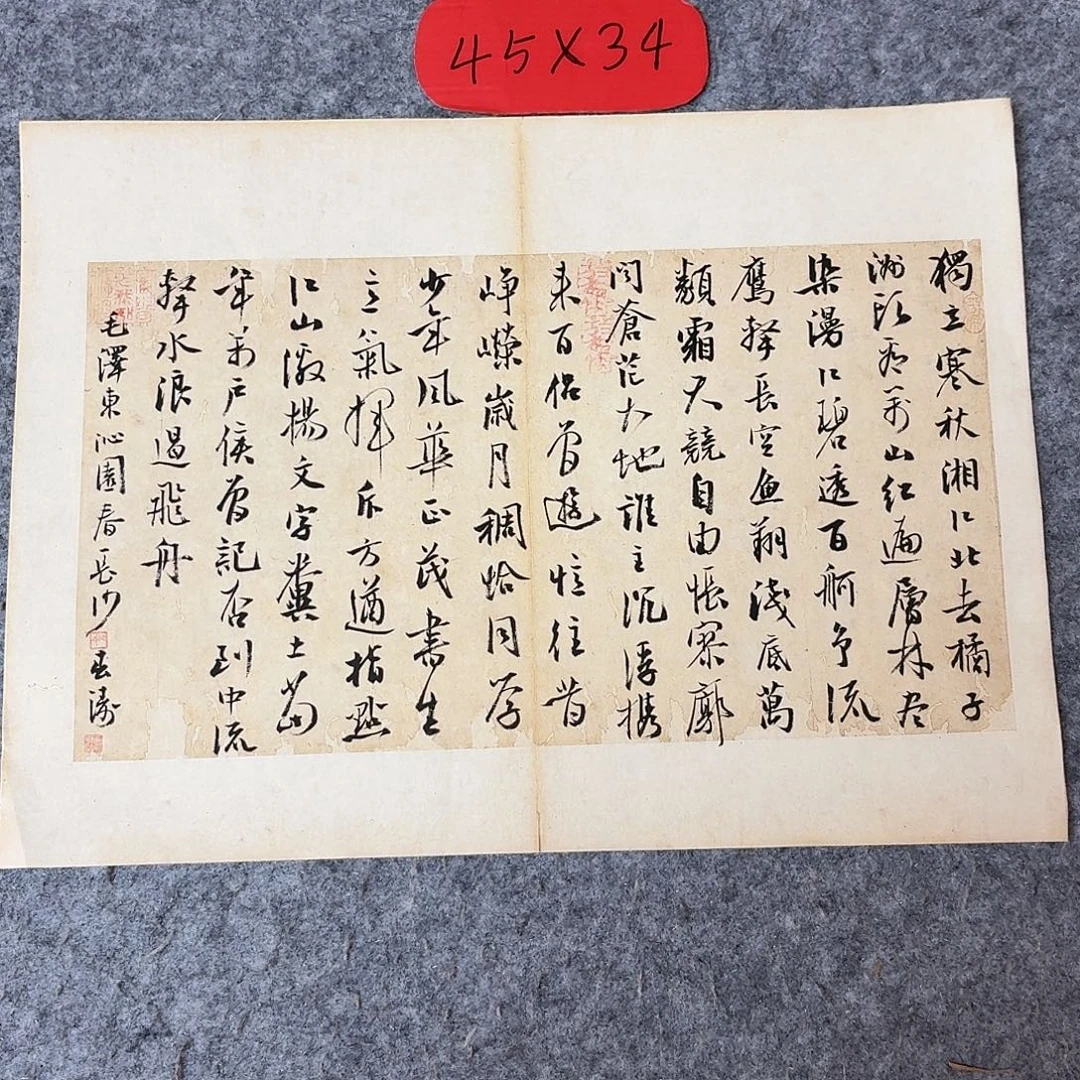 45X34
獨立寒秋湘江北去橘子
洲頭看萬山紅遍層林尽
染漫江碧透百舸争流
鷹擊長空魚翔淺底萬
類霜天競自由悵寥廓
問蒼茫大地誰主沉浮携
来百侣曾遊憶往昔
崢嶸歲月稠恰同学
少年風華正茂書生
意氣揮斥方遒指點
江山激揚文字糞土當
年萬户侯曾記否到中流
擊水浪遏飛舟
毛澤東沁園春長沙